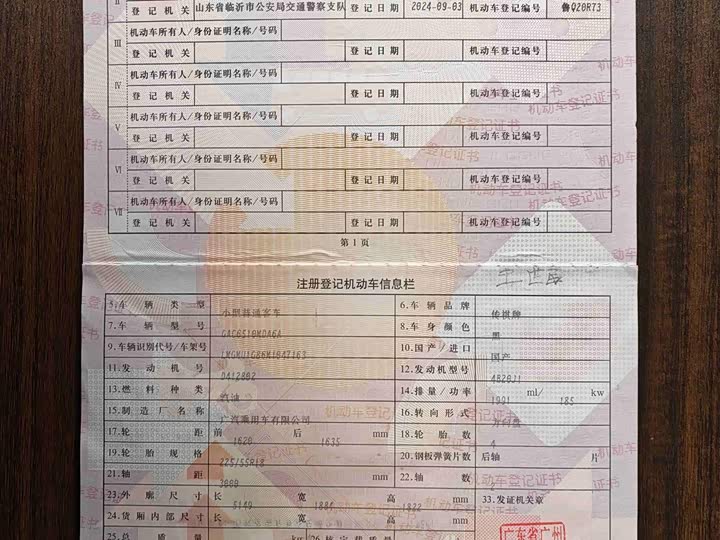 II 登记机关 山东省临沂市公安局交通警察支队 登记日期 2024-09-03 机动车登记编号 鲁Q20R73
III 机动车所有人/身份证明名称/号码
登记机关 登记日期 机动车登记编号
IV 机动车所有人/身份证明名称/号码
登记机关 登记日期 机动车登记编号
V 机动车所有人/身份证明名称/号码
登记机关 登记日期 机动车登记编号
VI 机动车所有人/身份证明名称/号码
登记机关 登记日期 机动车登记编号
VII 机动车所有人/身份证明名称/号码
登记机关 登记日期 机动车登记编号
第1页
注册登记机动车信息栏
5.车辆类型 小型普通客车 6.车辆品牌 传祺牌
7.车辆型号 GAC6510MDA6A 8.车身颜色 黑
9.车辆识别代号/车架号 10.国产/进口 国产
11.发动机号 12.发动机型号 4B20J1
13.燃料种类 汽油 14.排量/功率 1991 ml/ 185 kw
15.制造厂名称 广汽乘用车有限公司 16.转向形式 方向盘
17.轮距 前 1620 后 1635 mm 18.轮胎数 4
19.轮胎规格 225/55R18 20.钢板弹簧片数 后轴 片
21.轴距 3000 mm 22.轴数
23.外廓尺寸 长 5149 宽 高 mm 33.发证机关章
24.货厢内部尺寸 长 宽 高 mm
25.总质量 kg 26.核定载质量
广东省广州